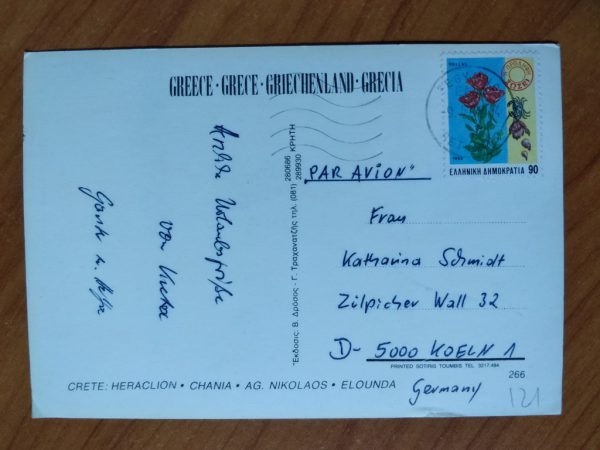 GREECE · GRECE · GRIECHENLAND · GRECIA
ΕΛΛΗΝΙΚΗ ΔΗΜΟΚΡΑΤΙΑ 90
"PAR AVION"
Frau
Katharina Schmidt
Zülpicher Wall 32
D- 5000 KOELN 1
Germany
Urlaubsgrüße
von Kreta
"Εκδοσις: Β. Δρόσος - Γ. Τραχανατζής τηλ. (081) 280686 289930 ΚΡΗΤΗ
PRINTED SOTIRIS TOUMBIS TEL. 3217-484
266
CRETE: HERACLION • CHANIA • AG. NIKOLAOS • ELOUNDA
121